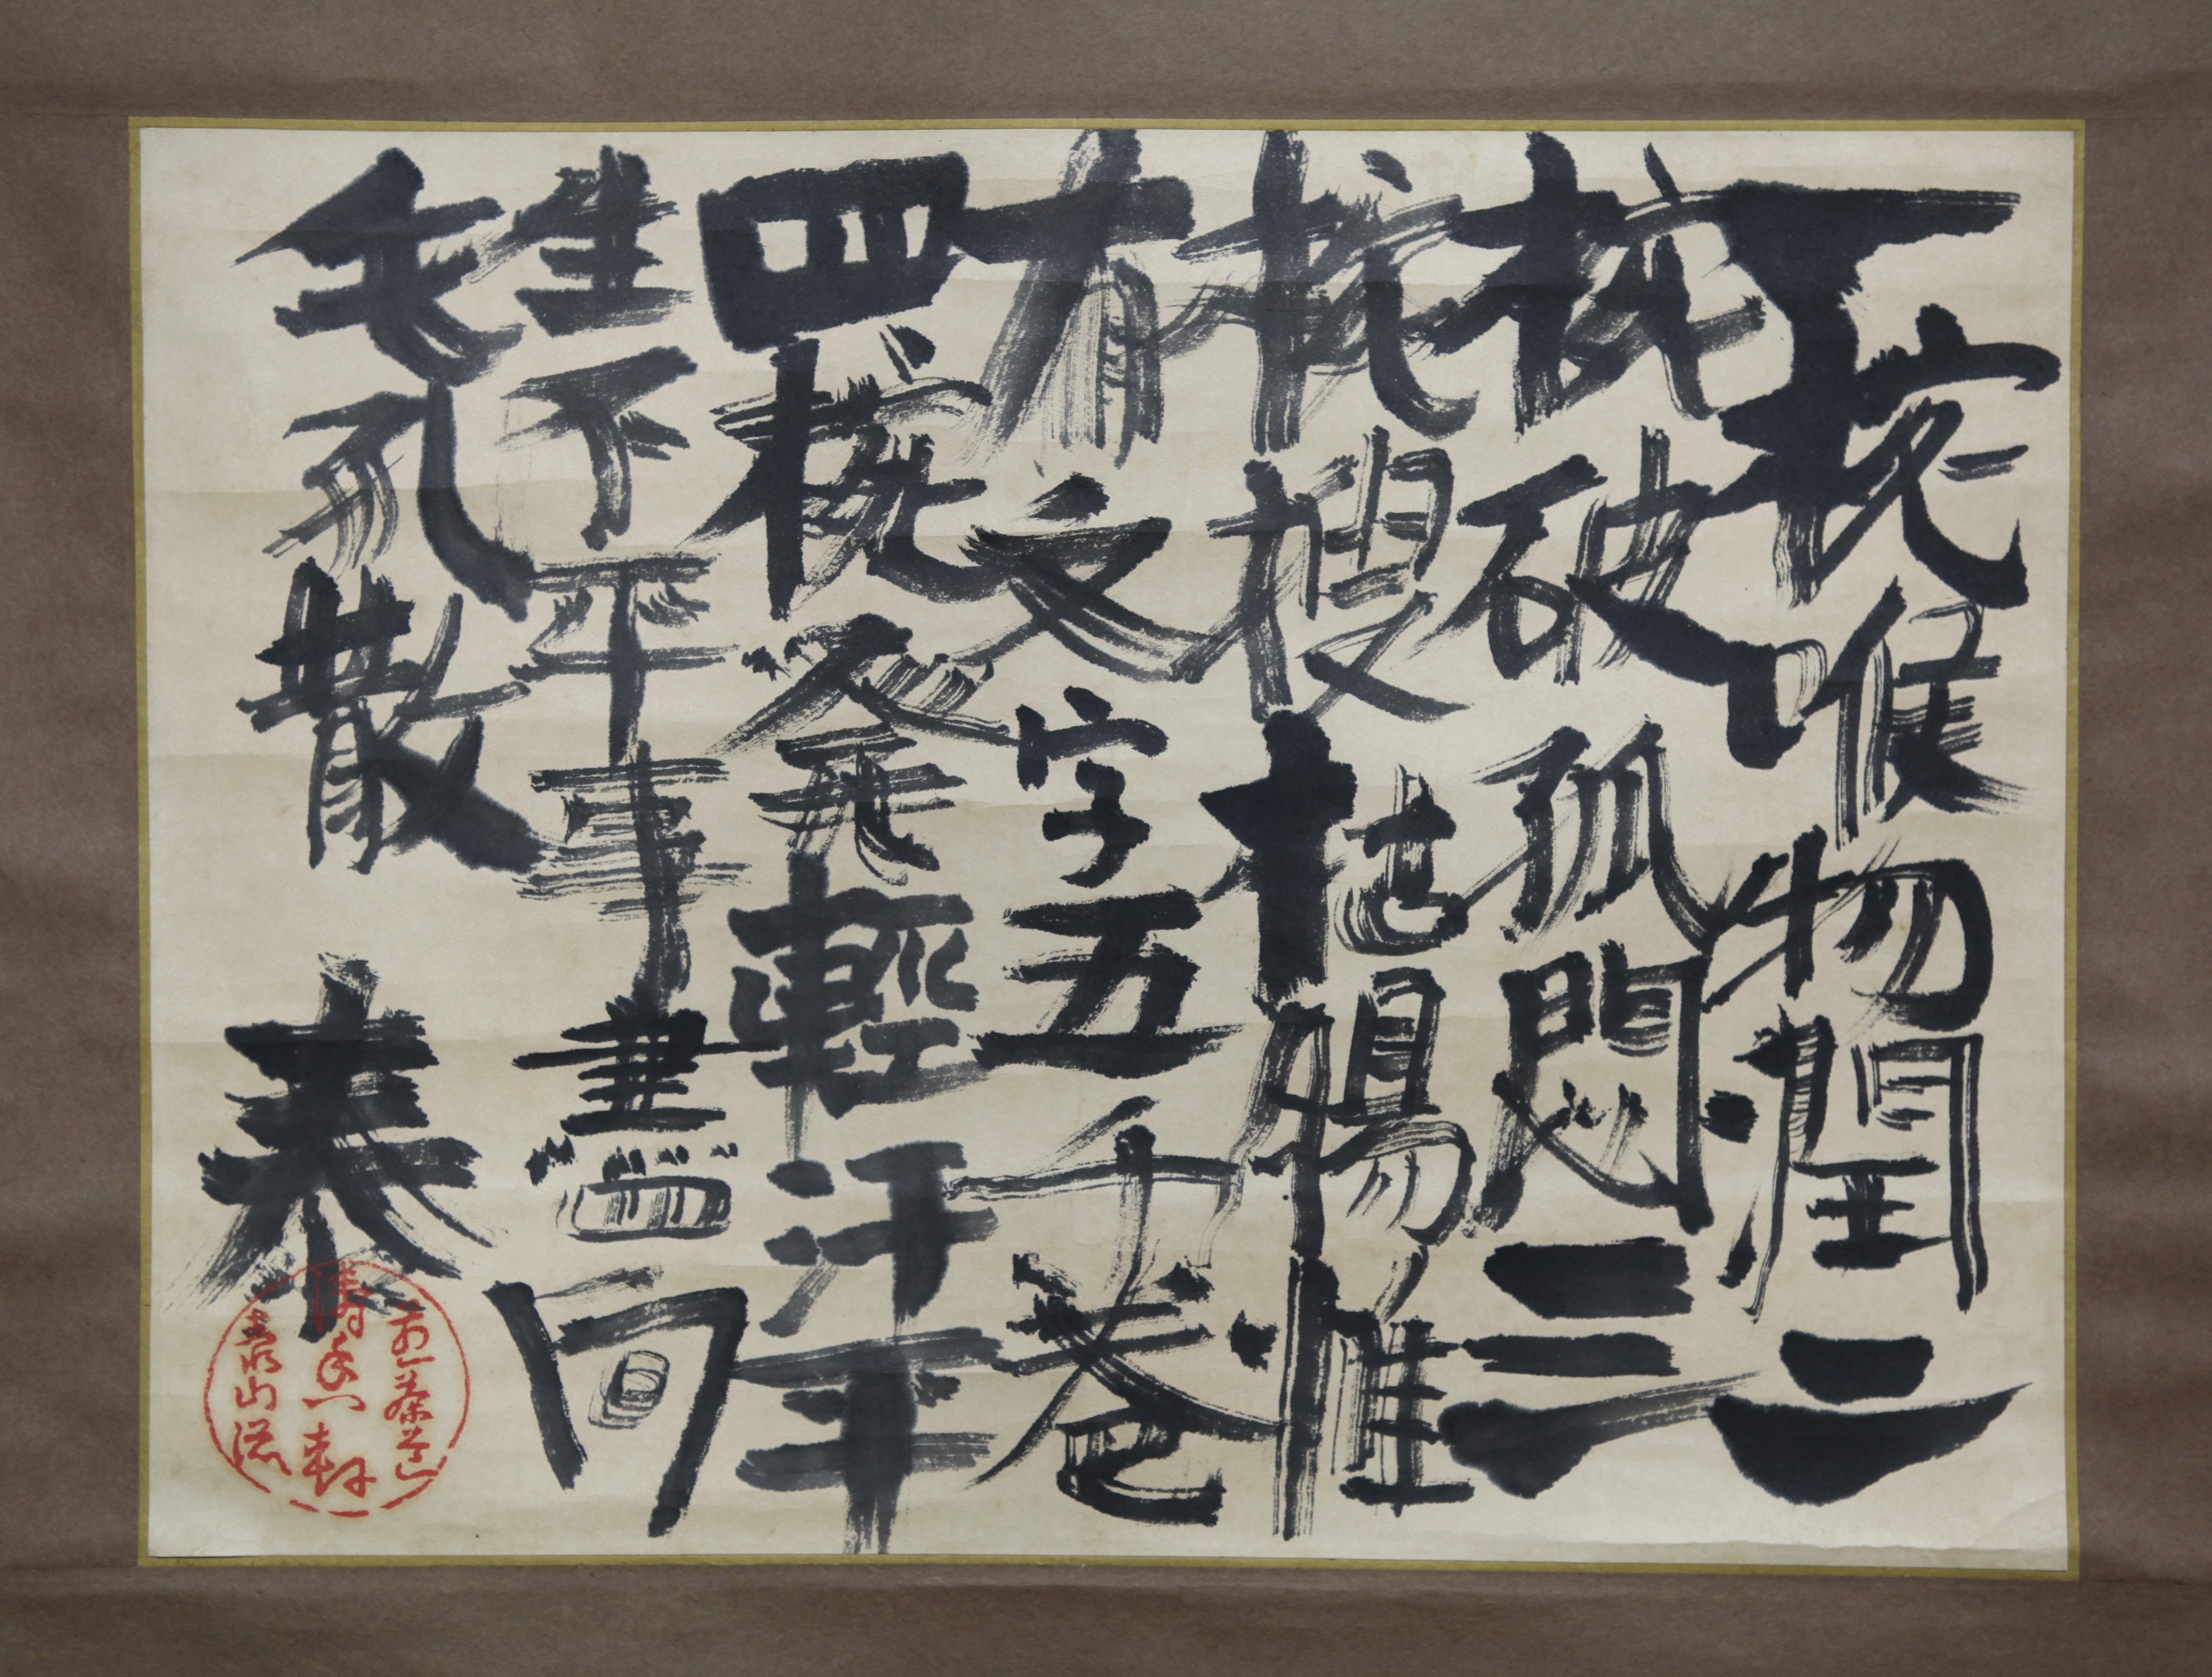 一椀喉物潤二
椀破孤悶三
椀搜枯腸惟
有文字五千卷
四椀發輕汗平
生不平事盡向
毛孔散 泰